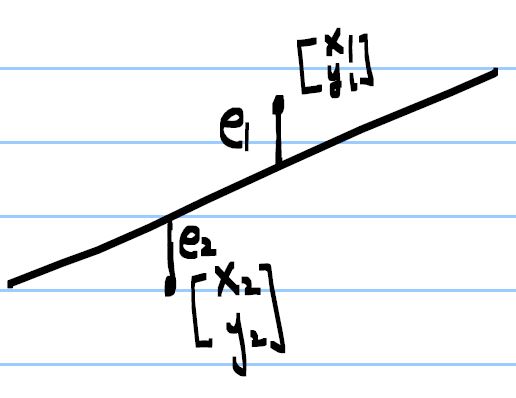 [x1
y1]
e1
e2
[x2
y2]